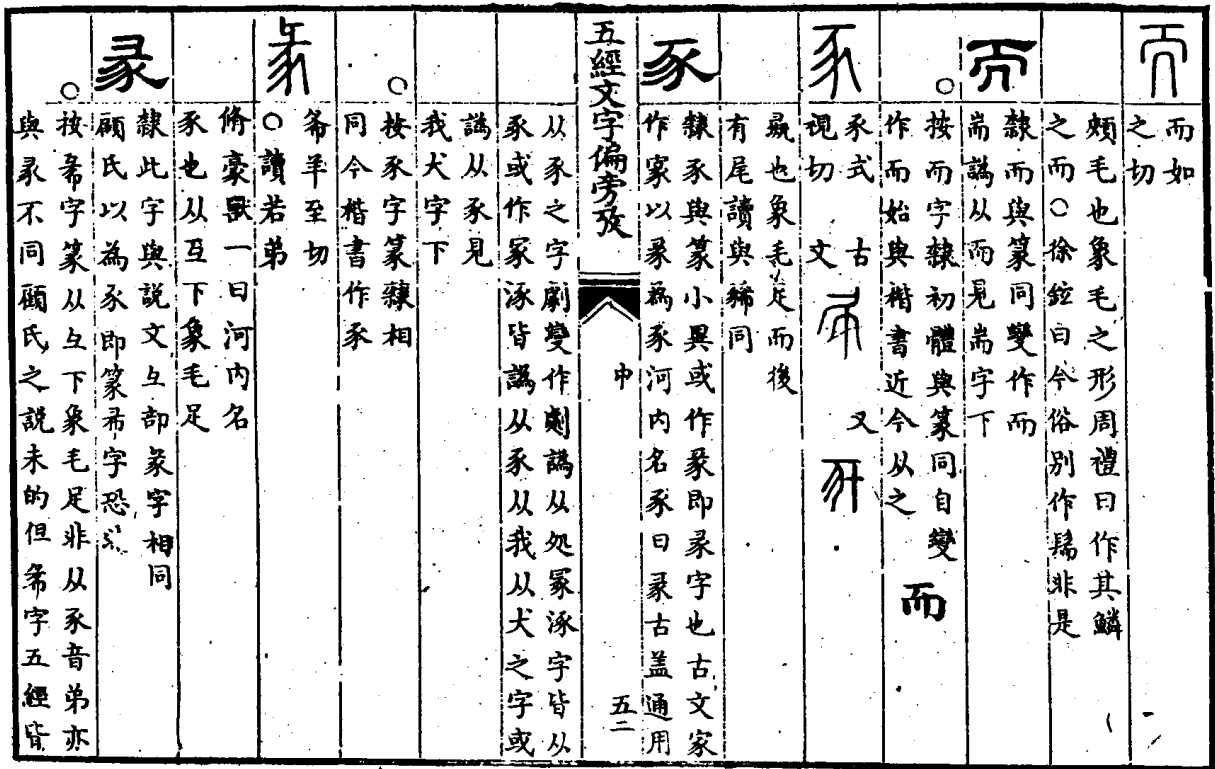 而如
之切
頰毛也象毛之形周禮曰作其鱗
之而○徐鉉曰今俗別作髵非是
而
隸而與篆同變作而
耑譌从而見耑字下
○按而字隸初體與篆同自變
作而始與楷書近今从之
而
豕
豕式 古
視切 文
又
彘也象毛足而後
有尾讀與豨同
豕
隸豕與篆小異或作彖即彖字也古文家
作以彖為豕河内名豕曰彖古盖通用
五經文字偏旁攷
中
五二
从豕之字劇變作劇譌从処冢涿字皆从
豕或作冢涿皆譌从豕从我从犬之字或
譌从豕見
我犬字下
○按豕字篆隸相
同今楷書作豕
㣇
㣇羊至切
○讀若弟
脩豪獸一曰河内名
豕也从彑下象毛足
彖
隸此字與說文彑部彖字相同
顧氏以為豕即篆㣇字恐
○按㣇字篆从彑下象毛足非从豕音弟亦
與彖不同顧氏之說未的但㣇字五經皆